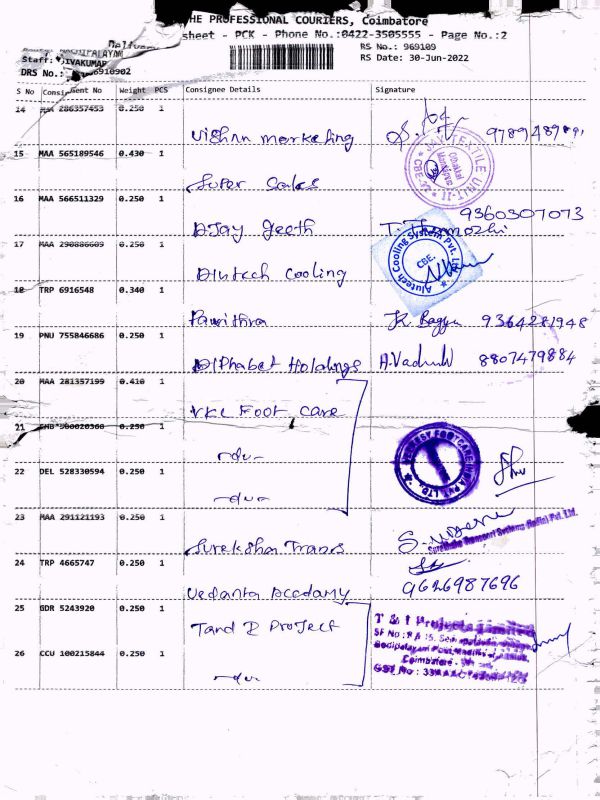 THE PROFESSIONAL COURIERS, Coimbatore
sheet - PCK - Phone No.:0422-3505555 - Page No.:2
RS No.: 969109
Staff: RS Date: 30-Jun-2022
DRS No.: 6910902
S No Consignment No Weight PCS Consignee Details Signature
14 286357453 0.250 1
Vishnu marketing
15 MAA 565189546 0.430 1
Super Sales
16 MAA 566511329 0.250 1
9360307073
Ajay Geeth
17 MAA 290886609 0.250 1
Alutech Cooling System Pvt. Ltd
CBE.
Alutech Cooling
18 TRP 6916548 0.340 1
Pavithra K. Bagya 9364281948
19 PNU 755846686 0.250 1
Alphabet Holdings 8807479884
20 MAA 281357199 0.410 1
VKC Foot Care
21 0.250 1
-do-
22 DEL 528330594 0.250 1
-do-
23 MAA 291121193 0.250 1
Sureksha Transport Systems (India) Pvt. Ltd.
Sureksha Trans
24 TRP 4665747 0.250 1
9626987696
Vedanta Accadamy
25 GDR 5243920 0.250 1
T and I Project
T & I Projects Limited
26 CCU 100215844 0.250 1
Coimbatore
GST No
-do-